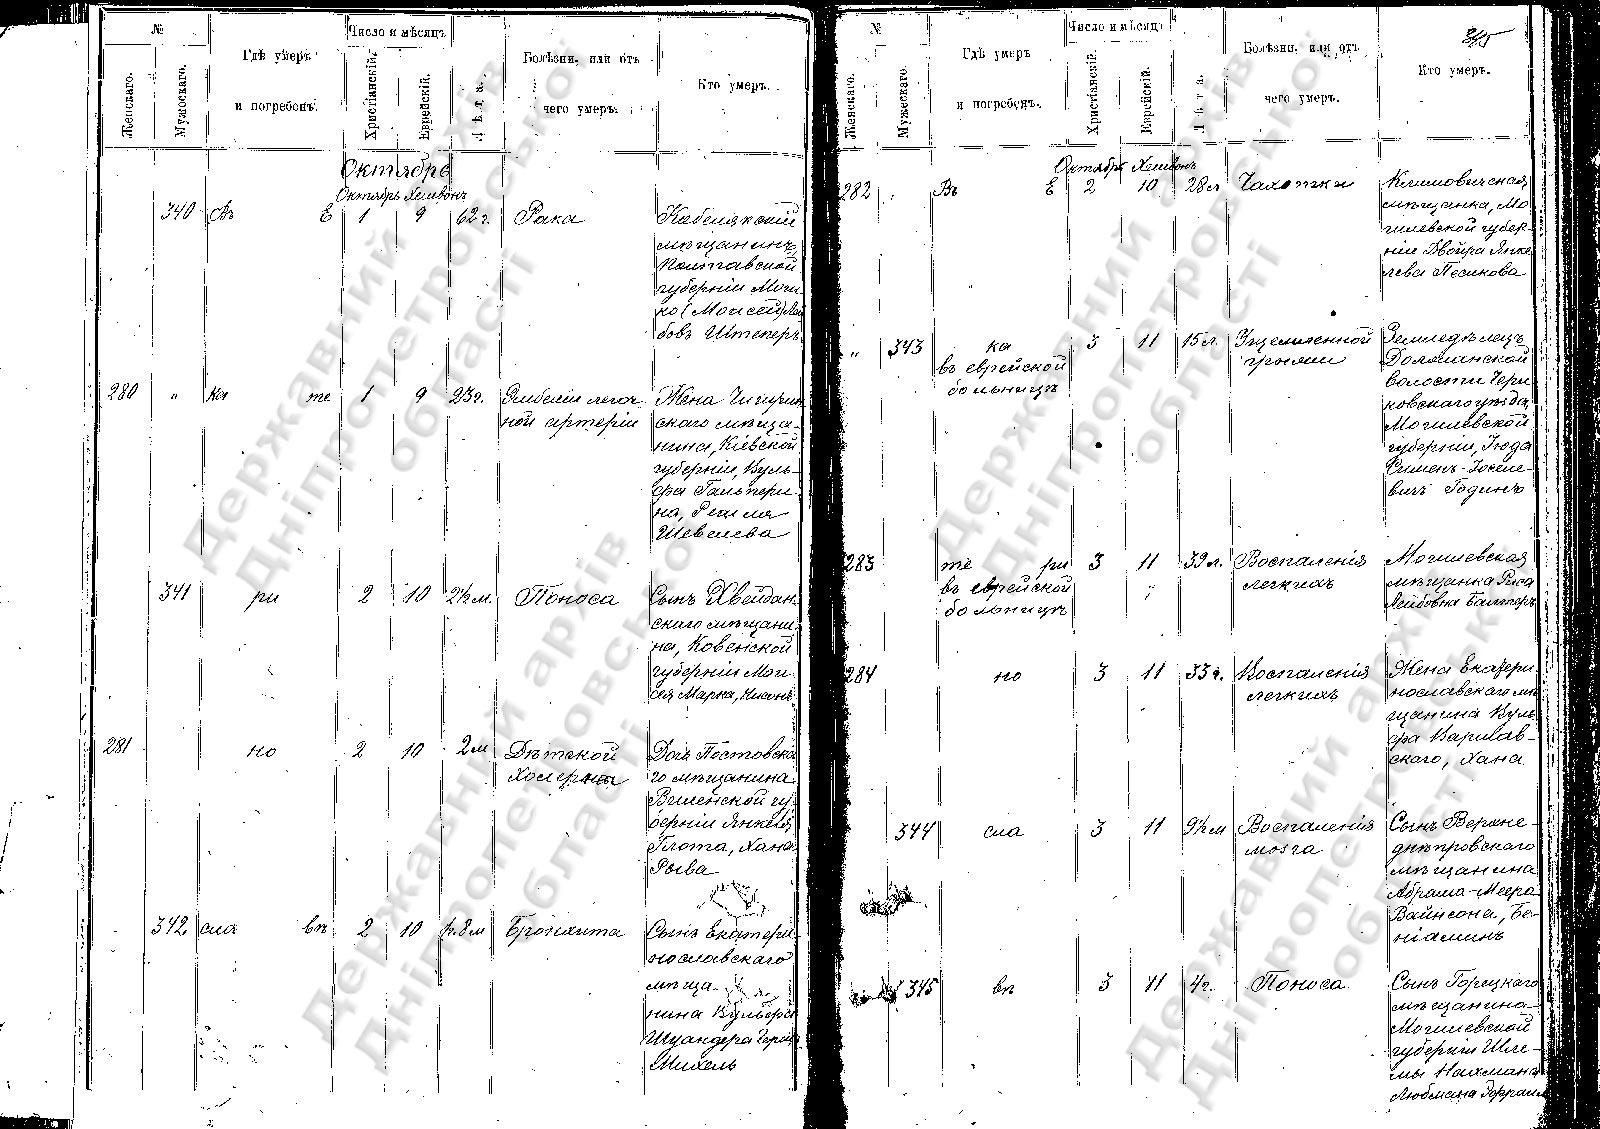 №
Женскаго.
Мужескаго.
Гдѣ умеръ
и погребенъ.
Число и мѣсяцъ
Христіанскій.
Еврейскій.
Лѣта.
Болѣзни, или отъ
чего умеръ.
Кто умеръ.
Октябрь
Октябрь Хешвонъ
340 Въ Е 1 9 62 г. Рака
Кобелякскій
мѣщанинъ
Полтавской
губерніи Мош-
ко (Моисей) Лей
бовъ Штеперъ
280 " ка те 1 9 23 г. Эмболіи легоч-
ной артеріи
Жена Чигирин
скаго мѣща-
нина, Кіевской
губерніи, Куль-
фра Гальпери-
на, Рехиля
Шевелева
341 ри 2 10 2½ м. Поноса
Сынъ Хвейдан-
скаго мѣщани-
на, Ковенской
губерніи Мои-
сея Марка, Нисонъ
281 но 2 10 2 м Дѣтской
холерина
Дочь Постовска
го мѣщанина
Виленской гу-
берніи Янкеля
Глота, Хана
Рыва
342 сла вѣ 2 10 1 г. 8 м Бронхита
Сынъ Екатери-
нославскаго
мѣща-
нина Кульфра
Шуандера Герша
Михель
№
Женскаго.
Мужескаго.
Гдѣ умеръ
и погребенъ.
Число и мѣсяцъ
Христіанскій.
Еврейскій.
Лѣта.
Болѣзни, или отъ
чего умеръ.
Кто умеръ.
315
Октябрь Хешвонъ
282 Въ Е 2 10 28 л Чахотки
Климовичская
мѣщанка, Мо-
гилевской губер-
ніи Двойра Янке
лева Песикова
" 343 ка 3 11 15 л. Ущемленной
въ еврейской грыжи
больницѣ
Земледѣлецъ
Долянской
волости Чери
ковскаго уѣзда,
Могилевской
губерніи, Іюда
Сименъ-Іоселе-
вичъ Годинъ
283 те ри 3 11 39 л. Воспаленія
въ еврейской легкихъ
больницѣ
Могилевская
мѣщанка Риса
Лейбовна Балтеръ
284 но 3 11 33 г. Воспаленія
легкихъ
Жена Екатери
нославскаго мѣ
щанина Куль
фра Варшав-
скаго, Хана
344 сла 3 11 9½ м Воспаленія
мозга
Сынъ Верхне-
днѣпровскаго
мѣщанина
Абрама-Меера
Вайнсона, Бе-
ніаминъ
345 вѣ 3 11 4 г. Поноса
Сынъ Горецкаго
мѣщанина
Могилевской
губерніи Шле-
мы Нахмана
Любмана Эфраим
Державний архів
Дніпропетровської
області
Державний архів
Дніпропетровської
області
Державний архів
Дніпропетровської
області
Державний архів
Дніпропетровської
області